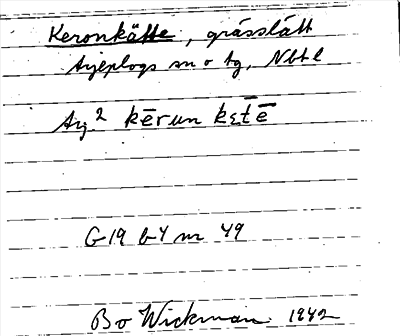 Keronkätte, grässlått
Arjeplogs sn o tg, Nbtl
Arj.² kērun kɛtē
G19 b4 nr 49
Bo Wickman 1942